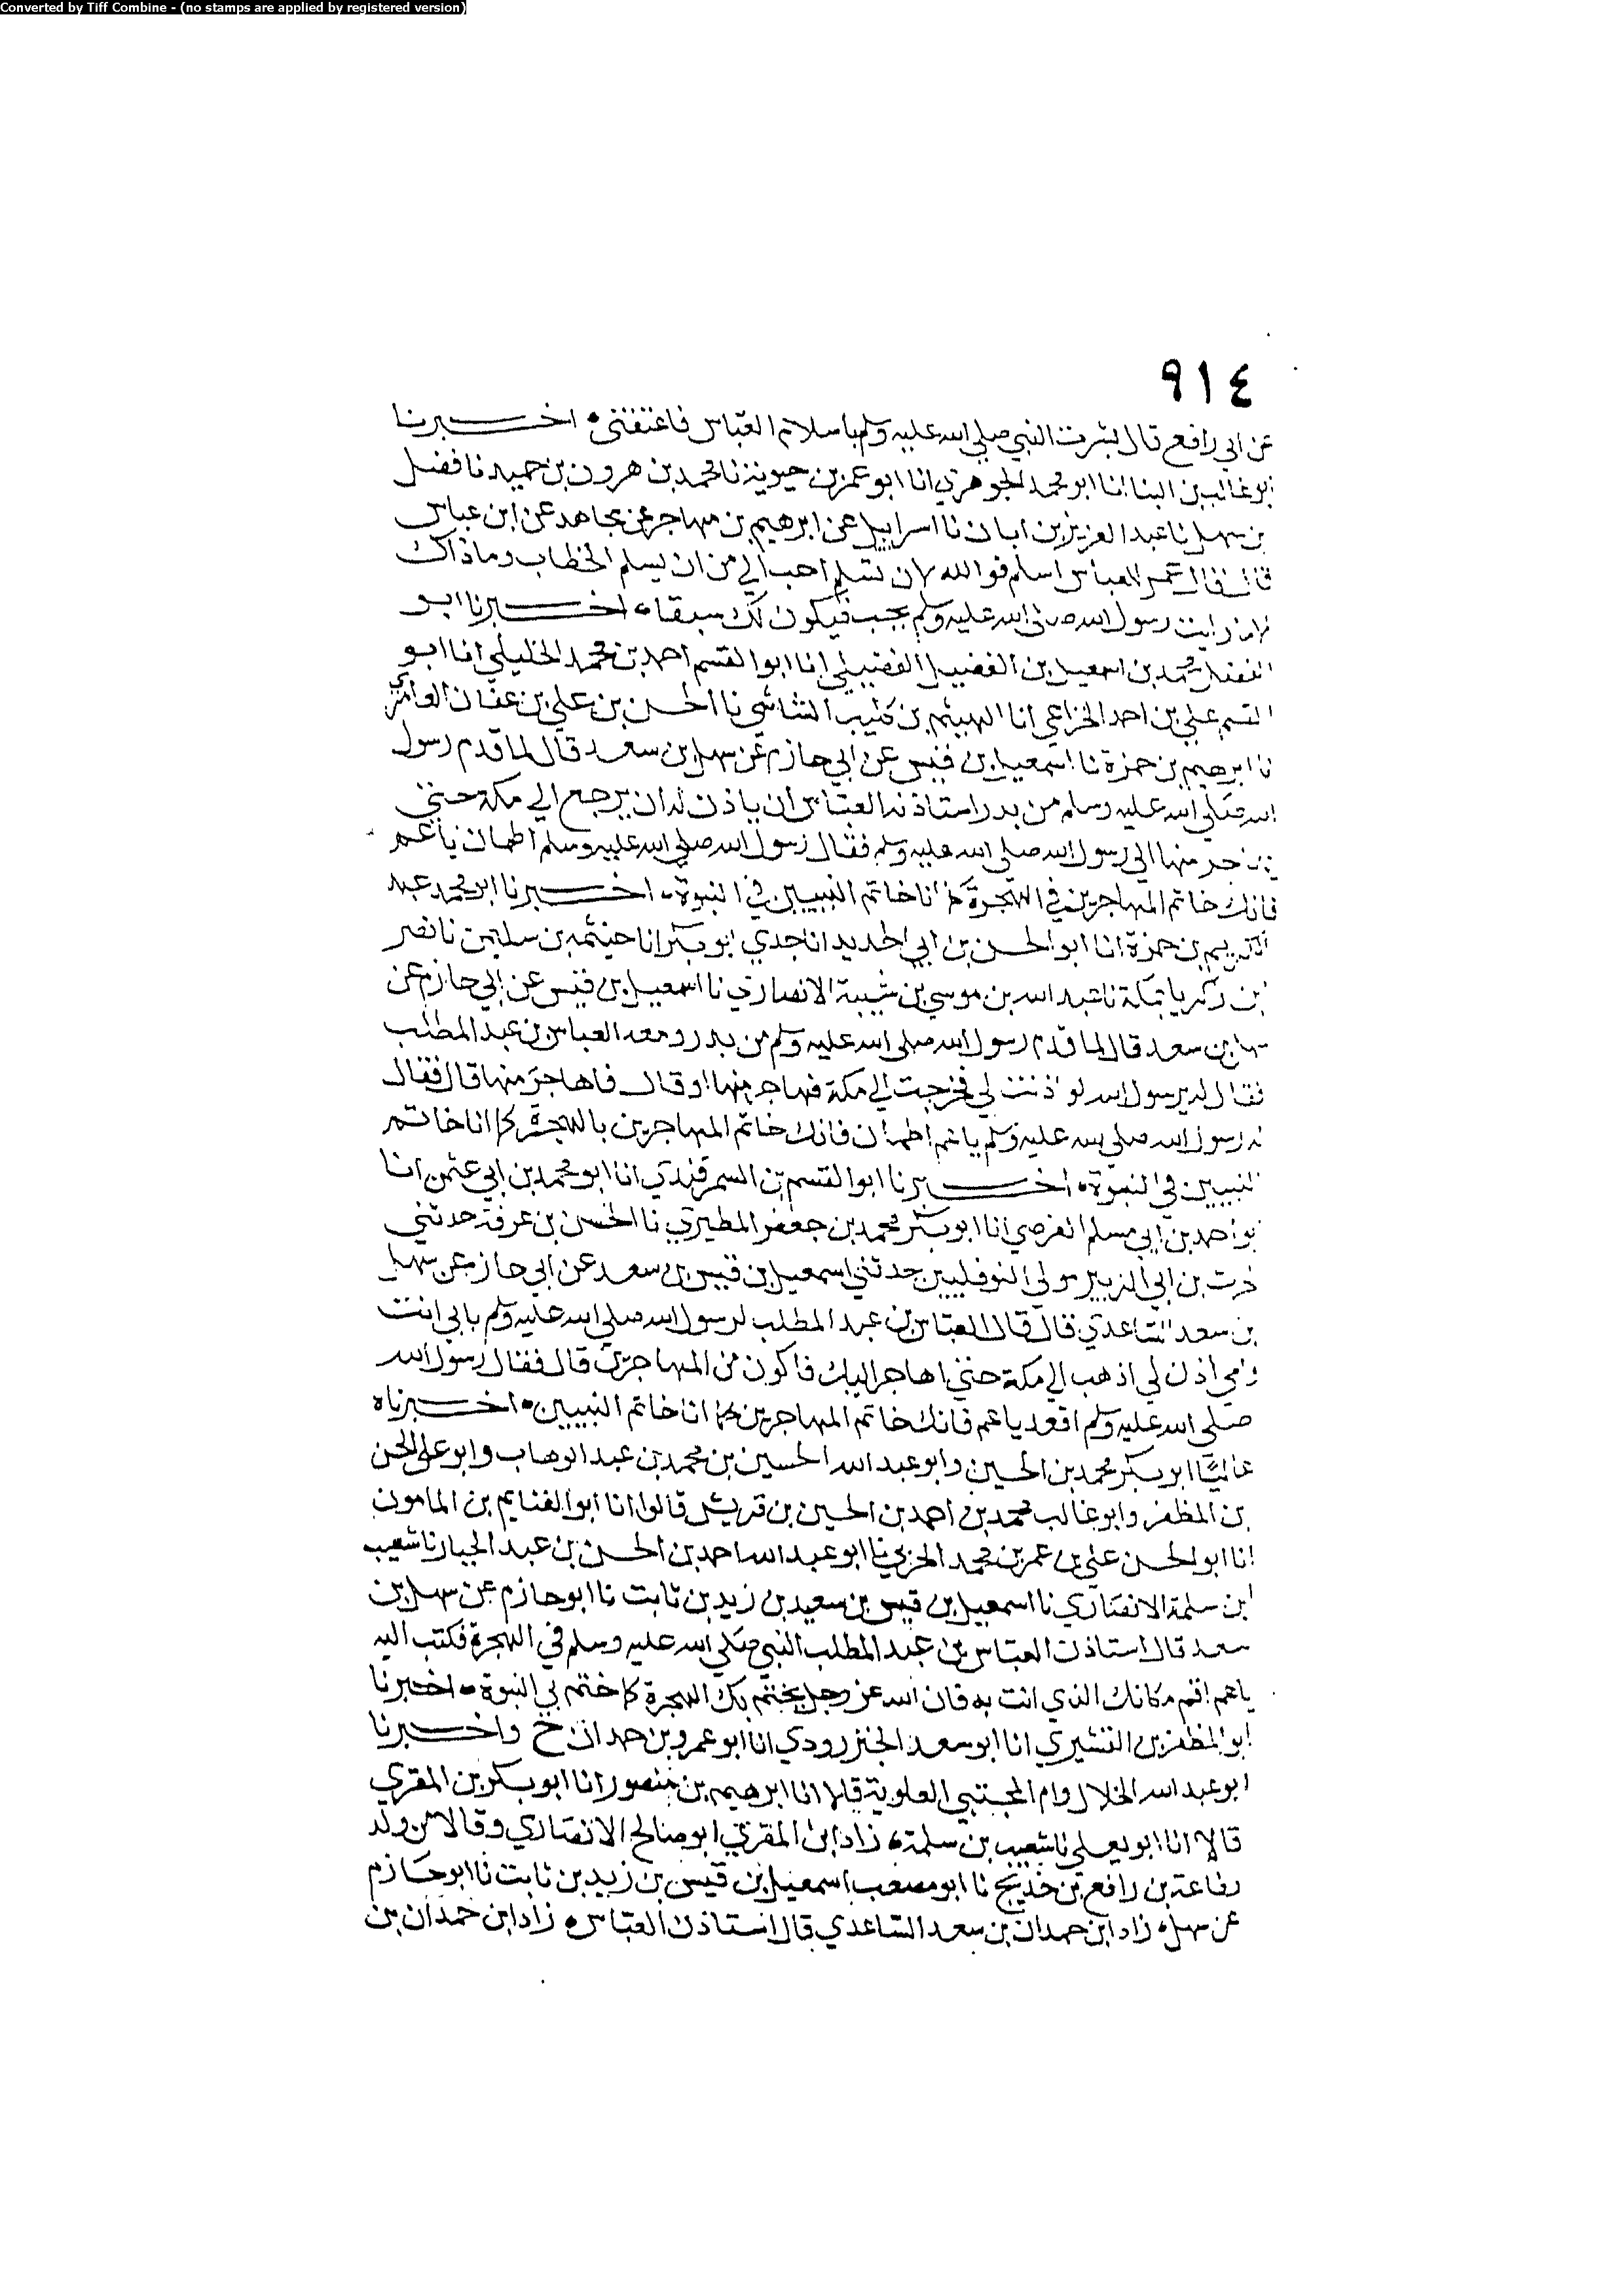 Converted by Tiff Combine - (no stamps are applied by registered version)
٩١٤
عن ابي رافع قال بشرت النبي صلى الله عليه وسلم باسلام العباس فاعتقني • اخبرنا
ابو غالب بن البنا انا ابو محمد الجوهري انا ابو عمر بن حيوية نا محمد بن هرون بن حميد نا فضل
بن سهل نا عبد العزيز بن ابان نا اسراييل عن ابرهيم بن مهاجر عن مجاهد عن ابن عباس
قال قال عمر للعباس اسلم فوالله لان تسلم احب الي من ان يسلم الخطاب وما ذاك
الا رايت رسول الله صلى الله عليه وسلم يحب فيكون لك سبقا • اخبرنا ابو
الفضل محمد بن اسمعيل بن الفضيل الفضيلي انا ابوا القسم احمد بن محمد الخليلي انا ابو
القسم علي بن احمد الخزاعي انا الهيثم بن كليب الشاشي نا الحسن بن علي بن عفان العامري
نا ابرهيم بن حمزة نا اسمعيل بن قيس عن ابي حازم عن سهل بن سعد قال لما قدم رسول
الله صلى الله عليه وسلم من بدر استاذنه العباس ان ياذن له ان يرجع الي مكة حتي
يهاجر منها الى رسول الله صلى الله عليه وسلم فقال رسول الله صلى الله عليه وسلم اطمان يا عم
فانك خاتم المهاجرين في الهجرة كما انا خاتم النبيين في النبوة • اخبرنا ابو محمد عبد
الكريم بن حمزة انا ابو الحسن بن ابي الحديد انا جدي ابو بكر انا خيثمه بن سليمن نا نصر
بن زكريا بمكة نا عبد الله بن موسي بن شيبة الانصاري نا اسمعيل بن قيس عن ابي حازم عن
سهل بن سعد قال لما قدم رسول الله صلى الله عليه وسلم من بدر ومعه العباس بن عبد المطلب
فقال له يرسول الله لو اذنت لي فخرجت الي مكة فهاجر منها او قال فاهاجر منها قال فقال
له رسول الله صلي الله عليه وسلم يا عم اطمان فانك خاتم المهاجرين بالهجرة كما انا خاتم
النبيين في النبوة • اخبرنا ابوا القسم بن السمرقندي انا ابو محمد بن ابي عثمن انا
ابو احمد بن ابي مسلم الفرضي انا ابو بكر محمد بن جعفر المطيري نا الحسن بن عرفة حدثني
بن ابي الزبير مولى النوفليين حدثني اسمعيل بن قيس بن سعد عن ابي حازم عن سهل
بن سعد الساعدي قال قال العباس بن عبد المطلب لرسول الله صلى الله عليه وسلم بابي انت
وامي اذن لي اذهب الي مكة حتي اهاجر اليك فاكون من المهاجرين قال فقال رسول الله
صلى الله عليه وسلم اقعد يا عم فانك خاتم المهاجرين كما انا خاتم النبيين • اخبرناه
عاليًا ابو بكر محمد بن الحسين وابو عبد الله الحسين بن محمد بن عبد الوهاب وابو علي الحسن
بن المظفر وابو غالب محمد بن احمد بن الحسين بن قريش قالوا انا ابوا الغنايم بن المامون
انا ابو الحسن علي بن عمر بن محمد الحربي نا ابو عبد الله احمد بن الحسن بن عبد الجبار نا شعيب
ابن سلمة الانصاري نا اسمعيل بن قيس بن سعيد بن زيد بن ثابت نا ابو حازم عن سهل بن
سعد قال استاذن العباس بن عبد المطلب النبي صلى الله عليه وسلم في الهجرة فكتب اليه
يا عم اقم مكانك الذي انت به فان الله عز وجل يختم بك الهجرة كما ختم بي النبوة • اخبرنا
ابو المظفر بن القشيري انا ابو سعد الجنزرودي انا ابو عمرو بن حمدان ح واخبرنا
ابو عبد الله الخلال وام المجتبي العلوية قالا انا ابرهيم بن منصور انا ابو بكر بن المقري
قالا انا ابو يعلي نا شعيب بن سلمة • زاد ابن المقري ابو صالح الانصاري وقالا من ولد
رفاعة بن رافع بن خديج نا ابو مصعب اسمعيل بن قيس بن زيد بن ثابت نا ابو حازم
عن سهل • زاد ابن حمدان بن سعد الساعدي قال استاذن العباس • زاد ابن حمدان بن